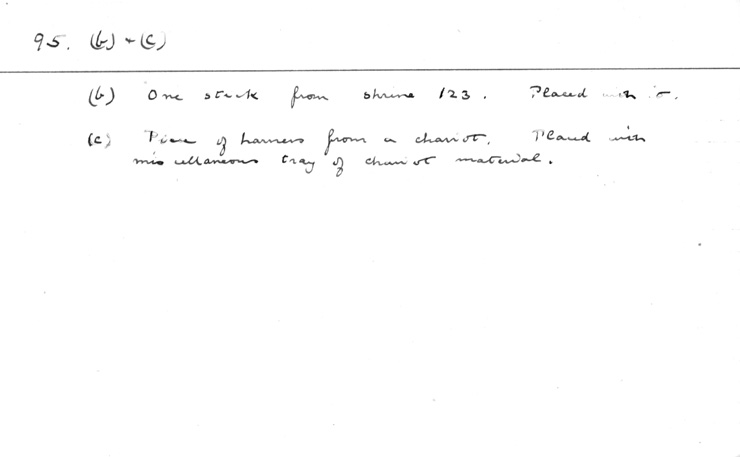 95. (b) + (c)
(b) One stick from shrine 123. Placed with it.
(c) Piece of harness from a chariot. Placed with
miscellaneous tray of chariot material.